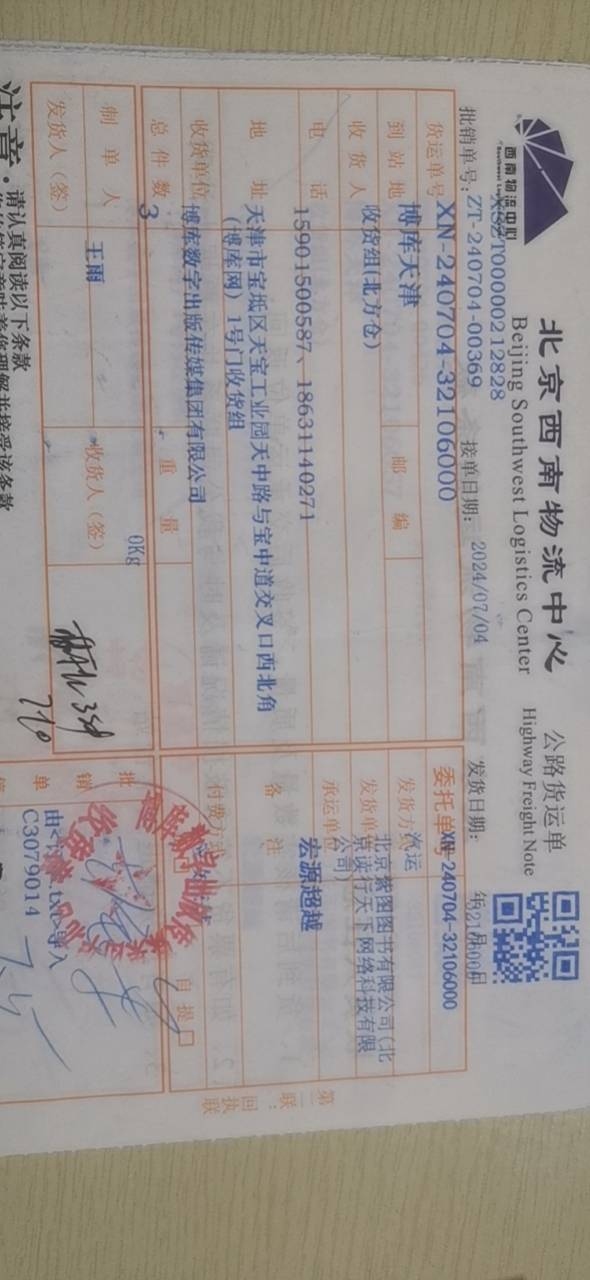 西南物流中心
Southwest Logistics
北京西南物流中心
公路货运单
Beijing Southwest Logistics Center
Highway Freight Note
XSZT00000212828
批销单号: ZT-240704-00369
接单日期: 2024/07/04
发货日期: 年 月 日
货运单号 XN-240704-32106000
委托单 XN-240704-32106000
到站地 博库天津
邮编
发货方式 汽运
收货人 收货组(北方仓)
发货单位 北京紫图图书有限公司(北京读行天下网络科技有限公司)
电话 15901500587、18631140271
承运单位 宏源超越
地址 天津市宝坻区天宝工业园天中路与宝中道交叉口西北角
(博库网) 1号门收货组
备注
收货单位 博库数字出版传媒集团有限公司
付费方式
自提口
总件数 3
重量 0Kg
制单人 王雨
收货人(签)
发货人(签)
批销单
C3079014
第二联:回执联
注意:
请认真阅读以下条款